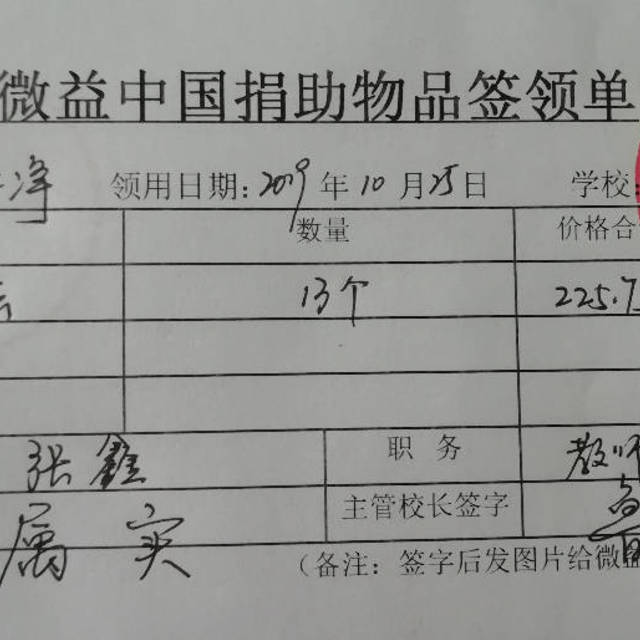 微益中国捐助物品签领单
净 领用日期：2019年10月25日 学校
数量 价格合
13个 225.7
张鑫 职 务 教师
主管校长签字
属实
（备注：签字后发图片给微益